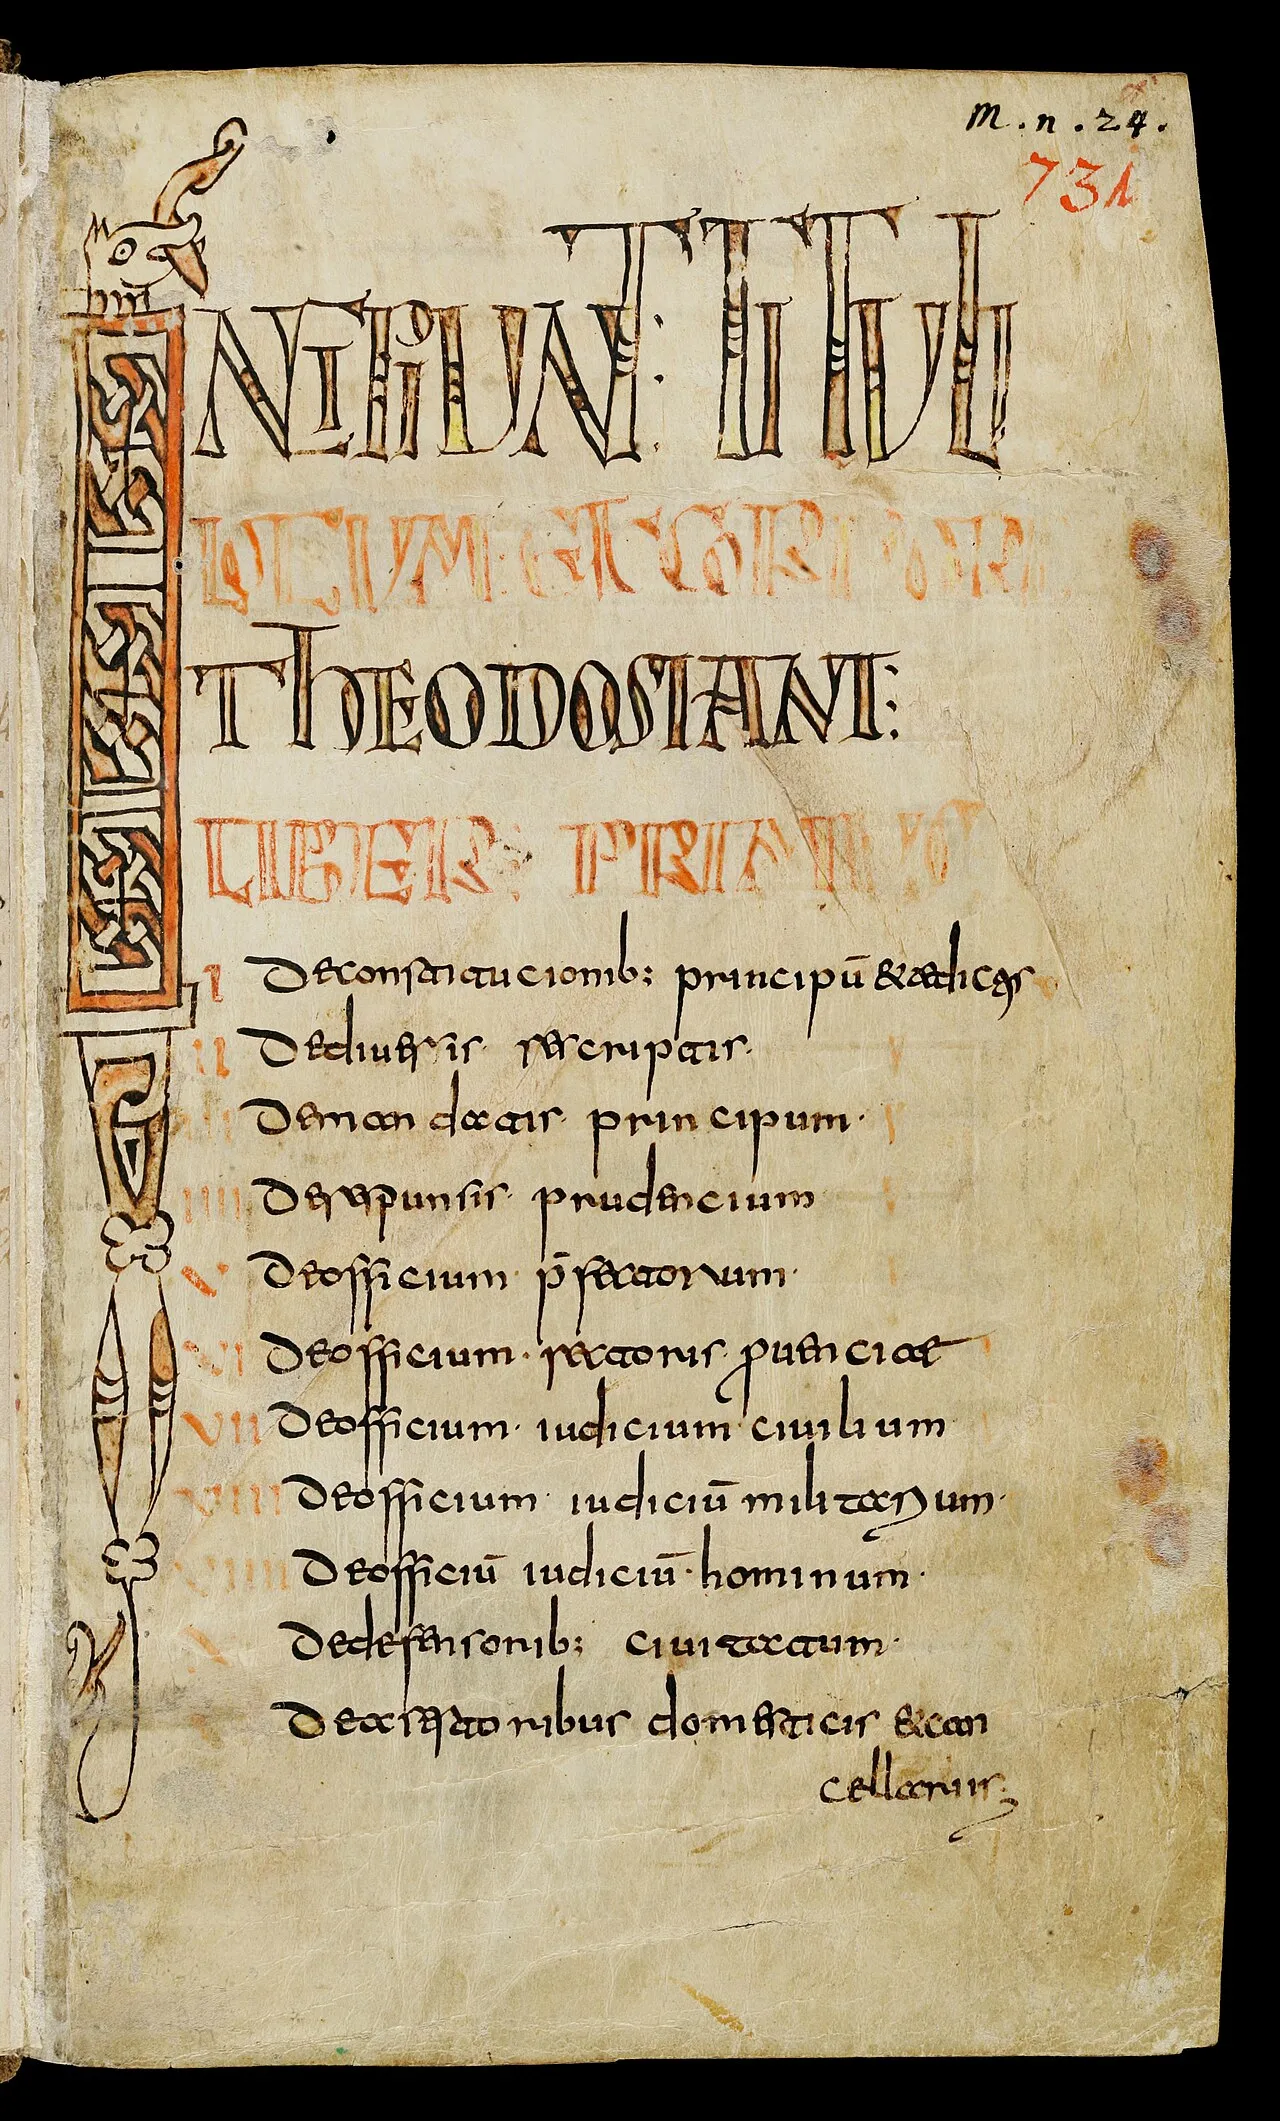 m. n. 24.
731
INCIPIUNT: TITULI
LEGUM: ET CORPORI
THEODOSIANI:
LIBER: PRIMUS
I Deconstitucionib; principū & edictis
II Dediuersis rescriptis.
Demandatis principum.
IIII Deresp̄unsis prudencium
V Deofficium p̄fectorum.
VI Deofficium. rectoris prouenciae
VII Deofficium. iudicium civilium
VIII Deofficium iudiciū militarium.
VIIII Deofficiū iudiciū. hominum.
X Dedefensorib; civitatum.
Deaxsestoribus domesticis & can
cellariis;